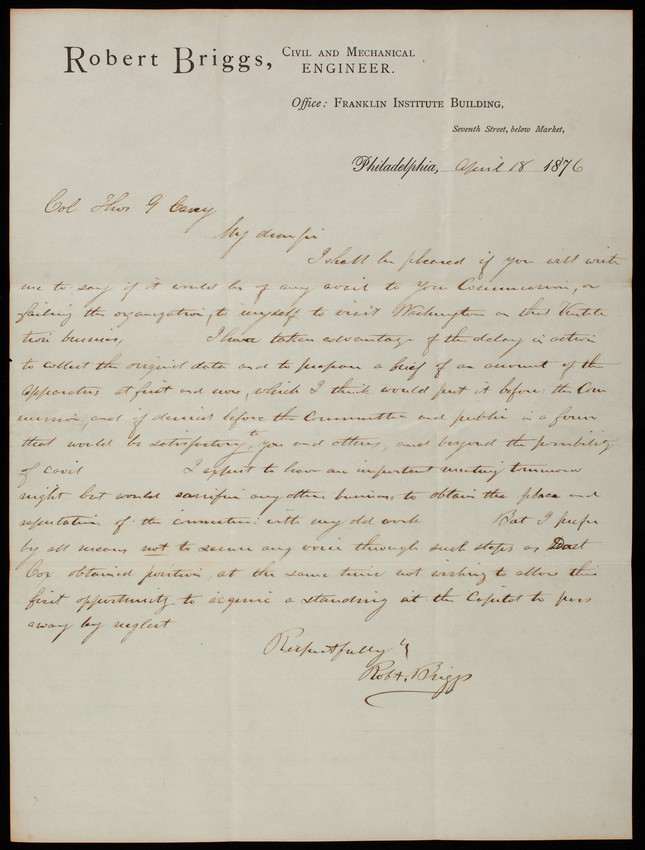 Robert Briggs, Civil and Mechanical
ENGINEER.
Office: Franklin Institute Building,
Seventh Street, below Market,
Philadelphia, April 18 1876
Col Thos
My dear sir
I shall be pleased if you will write
me to say if it would be of any avail to you Commission, or
failing the organization, to myself to visit Washington on this Ventila
tion business, I have taken advantage of the delay in action
to collect the original data and to prepare a brief of an account of the
apparatus at first and now, which I think would put it before the Com
mission, and if desired before the Committee and public in a form
that would be satisfactory to you and others, and beyond the possibility
of cavil I expect to have an important meeting tomorrow
night but would sacrifice any other business to obtain the place and
reputation of the connection with my old work But I prefer
by all means not to secure any voice through such steps as
Cox obtained position, at the same time not wishing to allow this
first opportunity to acquire a standing at the Capitol to pass
away by neglect
Respectfully yr
Robt. Briggs